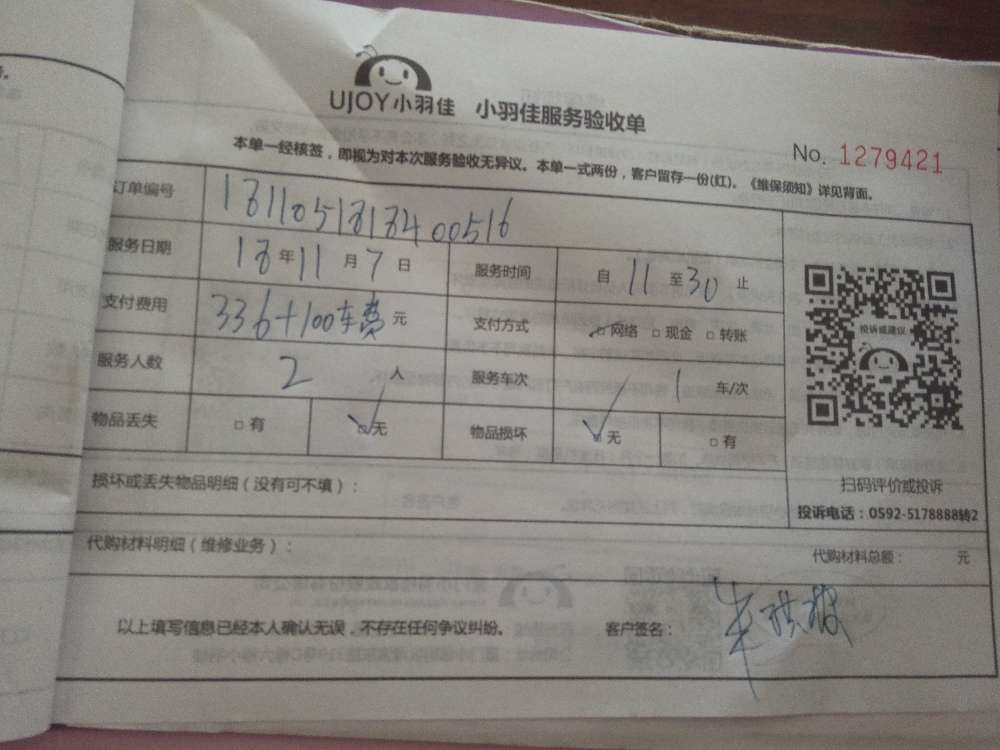 UJOY小羽佳 小羽佳服务验收单
No. 1279421
本单一经核签，即视为对本次服务验收无异议。本单一式两份，客户留存一份(红)。《维保须知》详见背面。
订单编号 1811051818400516
服务日期 18年11月7日 服务时间 自11至30止
支付费用 336+100车费元 支付方式 □网络 □现金 □转账
服务人数 2人 服务车次 1车/次
物品丢失 □有 ☑无 物品损坏 ☑无 □有
投诉或建议
扫码评价或投诉
投诉电话：0592-5178888转2
损坏或丢失物品明细（没有可不填）：
代购材料明细（维修业务）： 代购材料总额： 元
以上填写信息已经本人确认无误，不存在任何争议纠纷。 客户签名：